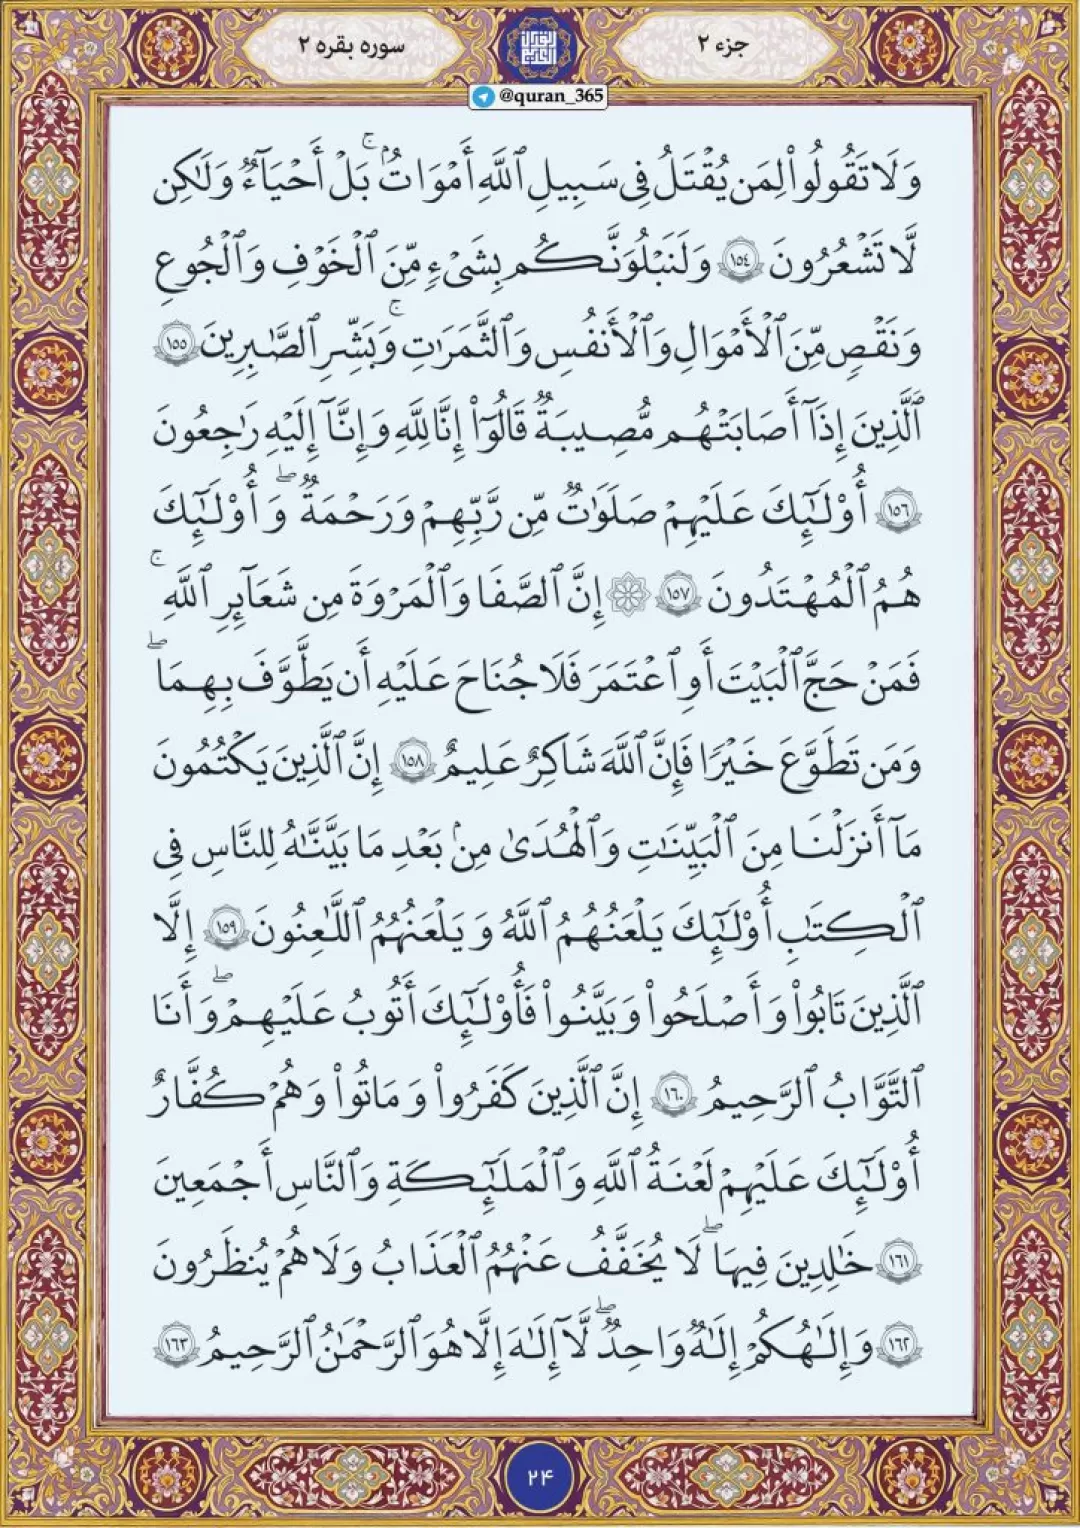 جزء ۲
سوره بقره ۲
@quran_365
وَلَا تَقُولُوا۟ لِمَن يُقْتَلُ فِى سَبِيلِ ٱللَّهِ أَمْوَٰتٌۢ ۚ بَلْ أَحْيَآءٌ وَلَٰكِن
لَّا تَشْعُرُونَ ١٥٤ وَلَنَبْلُوَنَّكُم بِشَىْءٍ مِّنَ ٱلْخَوْفِ وَٱلْجُوعِ
وَنَقْصٍ مِّنَ ٱلْأَمْوَالِ وَٱلْأَنفُسِ وَٱلثَّمَرَٰتِ ۚ وَبَشِّرِ ٱلصَّٰبِرِينَ ١٥٥
ٱلَّذِينَ إِذَآ أَصَابَتْهُم مُّصِيبَةٌ قَالُوٓا۟ إِنَّا لِلَّهِ وَإِنَّآ إِلَيْهِ رَٰجِعُونَ
١٥٦ أُو۟لَٰٓئِكَ عَلَيْهِمْ صَلَوَٰتٌ مِّن رَّبِّهِمْ وَرَحْمَةٌ ۖ وَأُو۟لَٰٓئِكَ
هُمُ ٱلْمُهْتَدُونَ ١٥٧ ۞ إِنَّ ٱلصَّفَا وَٱلْمَرْوَةَ مِن شَعَآئِرِ ٱللَّهِ ۚ
فَمَنْ حَجَّ ٱلْبَيْتَ أَوِ ٱعْتَمَرَ فَلَا جُنَاحَ عَلَيْهِ أَن يَطَّوَّفَ بِهِمَا ۖ
وَمَن تَطَوَّعَ خَيْرًا فَإِنَّ ٱللَّهَ شَاكِرٌ عَلِيمٌ ١٥٨ إِنَّ ٱلَّذِينَ يَكْتُمُونَ
مَآ أَنزَلْنَا مِنَ ٱلْبَيِّنَٰتِ وَٱلْهُدَىٰ مِنۢ بَعْدِ مَا بَيَّنَّٰهُ لِلنَّاسِ فِى
ٱلْكِتَٰبِ أُو۟لَٰٓئِكَ يَلْعَنُهُمُ ٱللَّهُ وَيَلْعَنُهُمُ ٱللَّٰعِنُونَ ١٥٩ إِلَّا
ٱلَّذِينَ تَابُوا۟ وَأَصْلَحُوا۟ وَبَيَّنُوا۟ فَأُو۟لَٰٓئِكَ أَتُوبُ عَلَيْهِمْ ۖ وَأَنَا
ٱلتَّوَّابُ ٱلرَّحِيمُ ١٦٠ إِنَّ ٱلَّذِينَ كَفَرُوا۟ وَمَاتُوا۟ وَهُمْ كُفَّارٌ
أُو۟لَٰٓئِكَ عَلَيْهِمْ لَعْنَةُ ٱللَّهِ وَٱلْمَلَٰٓئِكَةِ وَٱلنَّاسِ أَجْمَعِينَ
١٦١ خَٰلِدِينَ فِيهَا ۖ لَا يُخَفَّفُ عَنْهُمُ ٱلْعَذَابُ وَلَا هُمْ يُنظَرُونَ
١٦٢ وَإِلَٰهُكُمْ إِلَٰهٌ وَاحِدٌ ۖ لَّآ إِلَٰهَ إِلَّا هُوَ ٱلرَّحْمَٰنُ ٱلرَّحِيمُ ١٦٣
۲۴